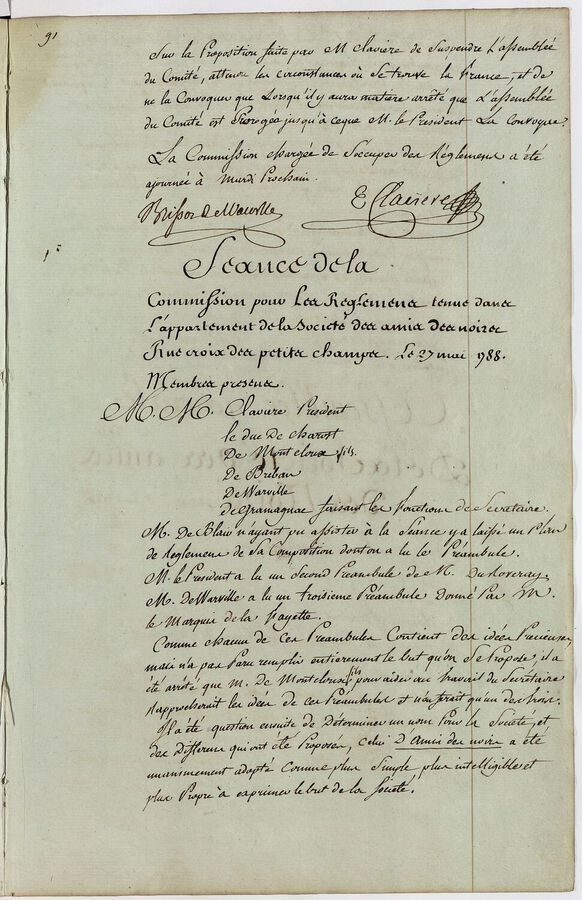 91
Sur la Proposition faite par M Claviere de Suspendre L'assemblée
du Comité, attendu les circonstances où Se trouve la france, et de
ne la Convoquer que Lorsqu'il y aura matiere arrêté que L'assemblée
du Comité est Prorogée jusqu'à ceque M. le President La Convoque.
La Commission chargée de S'occuper des Réglemens a été
ajournée à Mardi Prochain.
Brissot de Warville
E Claviere
Séance de la
Commission pour Les Reglemens tenue dans
L'appartement de la Societé des amis des noirs
Rue croix des petits champs. Le 27 mai 1788.
Membres presens.
M. M. Claviere President
le duc de charost
De Montcloux fils.
De Breban
De Warville
de Gramagnac faisant les fonctions de Secretaire.
M. De Blair n'ayant pu assister à la Seance y a laissé un Plan
de Reglemens de Sa Composition dont on a lu le Préambule.
M. le President a lu un Second Preambule de M. Du Roveray
M. De Warville a lu un troisieme Préambule Donné Par M.
le Marquis de la fayette.
Comme chacun de ces Preambules Contient des idées Precieuses,
mais n'a pas Paru remplir entierement le but qu'on Se Propose, il a
été arrêté que M. De Montcloux fils pour aider au travail du Secretaire
Rapprocherait les idées de ces Preambules et n'en ferait qu'un des trois.
Il a été question ensuite de Determiner un nom Pour la Societé, et
des Differens qui ont été Proposés, Celui D'Amis des noirs a été
unanimement adopté Comme plus Simple plus intelligible et
plus Propre à exprimer le but de la Societé.